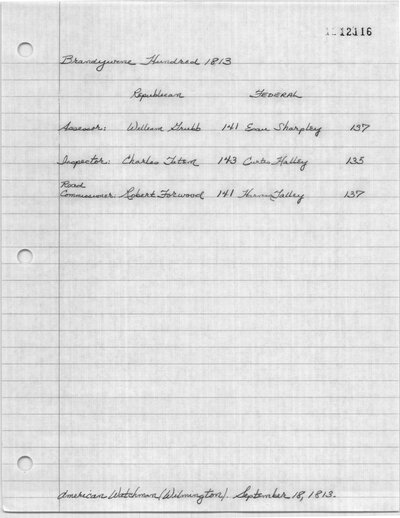 112116
Brandywine Hundred 1813
Republican FEDERAL
Assessor: William Grubb 141 Sharpley 137
Inspector: Charles Tatem 143 Curtis 135
Road
Commissioner: Robert Forwood 141 Talley 137
American Watchman (Wilmington). September 18, 1813.